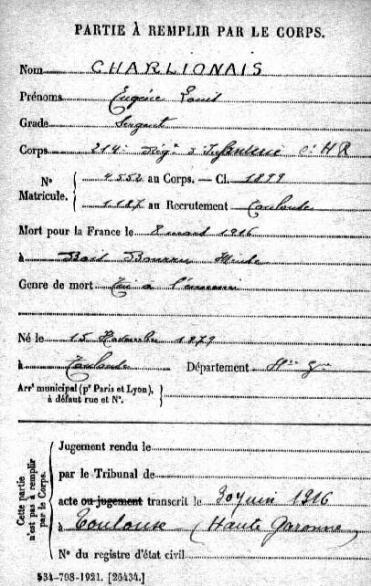 PARTIE À REMPLIR PAR LE CORPS.
Nom CHARLIONAIS
Prénoms Eugène Louis
Grade Sergent
Corps 214e Rég. d'Infanterie
No Matricule. 4552 au Corps. — Cl. 1899
1187 au Recrutement Toulouse
Mort pour la France le 8 mars 1916
à Bois Bourrus Meuse
Genre de mort Tué à l'ennemi
Né le 15 Novembre 1879
à Toulouse Département Hte Gne
Arr' municipal (pr Paris et Lyon),
à défaut rue et No.
Cette partie n'est pas à remplir par le Corps.
Jugement rendu le
par le Tribunal de
acte ou jugement transcrit le 30 juin 1916
à Toulouse (Haute Garonne)
No du registre d'état civil
534-708-1921. [26434.]